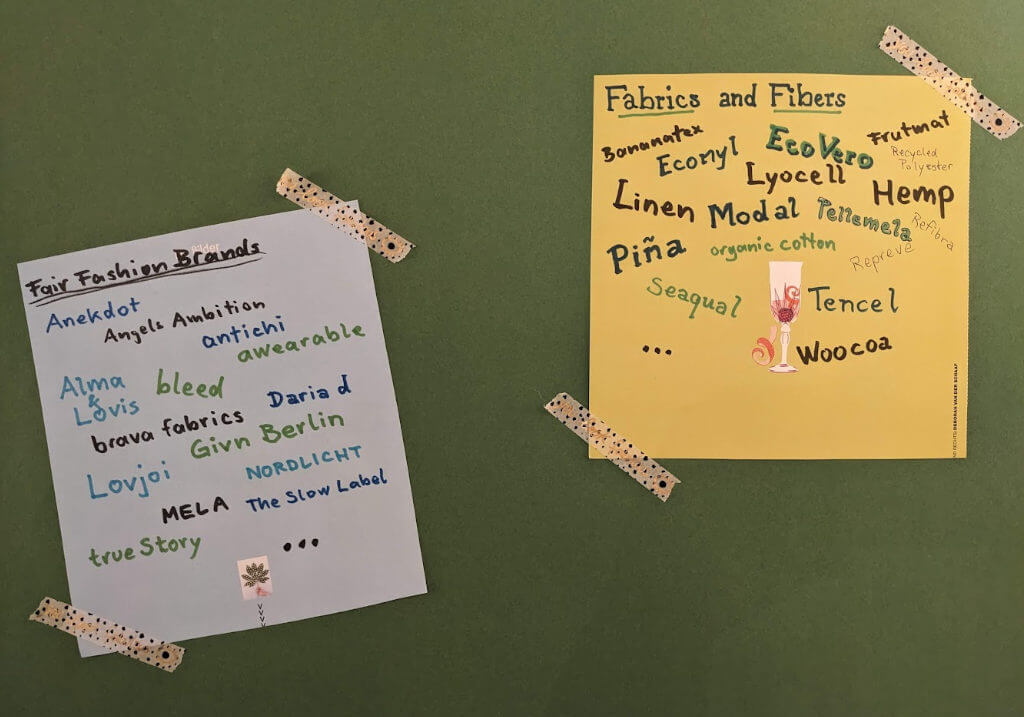 Fair Fashion Brands
Anekdot
Angels Ambition
antichi
awearable
Alma
&
Lovis
bleed
Daria d
brava fabrics
Givn Berlin
Lovjoi
NORDLICHT
MELA
The Slow Label
true Story
...
Fabrics and Fibers
Bananatex
Econyl
EcoVero
Frutmat
Recycled
Polyester
Lyocell
Linen
Modal
Hemp
Tellemela
Refibra
Piña
organic cotton
Repreve
Seaqual
Tencel
...
Woocoa